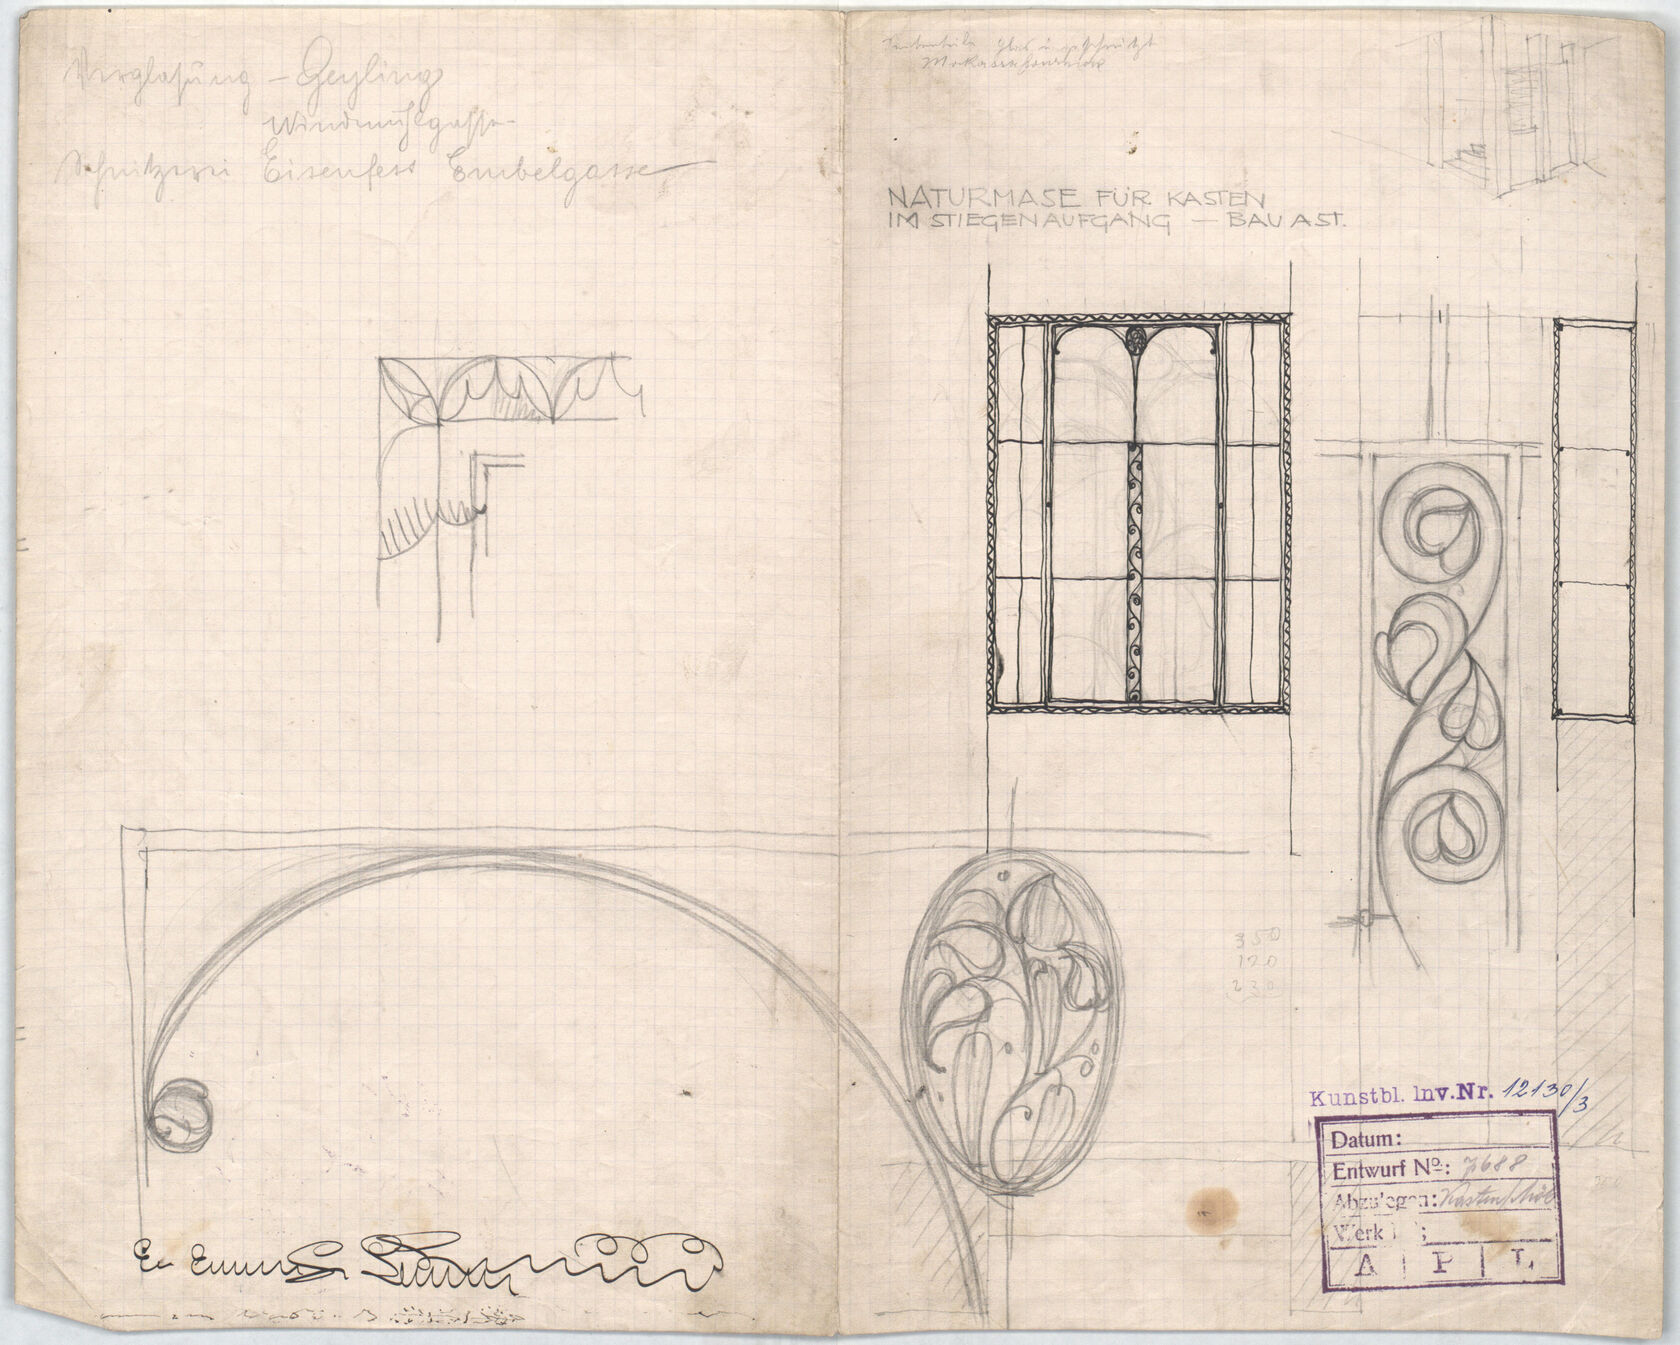 Verglasung — Geyling
Windmühlgasse
Schnitzerei Eisenfess Embelgasse
NATURMASE FÜR KASTEN
IM STIEGENAUFGANG — BAU AST.
350
120
230
Kunstbl. Inv.Nr. 12130/3
Datum:
Entwurf No: 7688
Abzulegen:
Werk
A P L